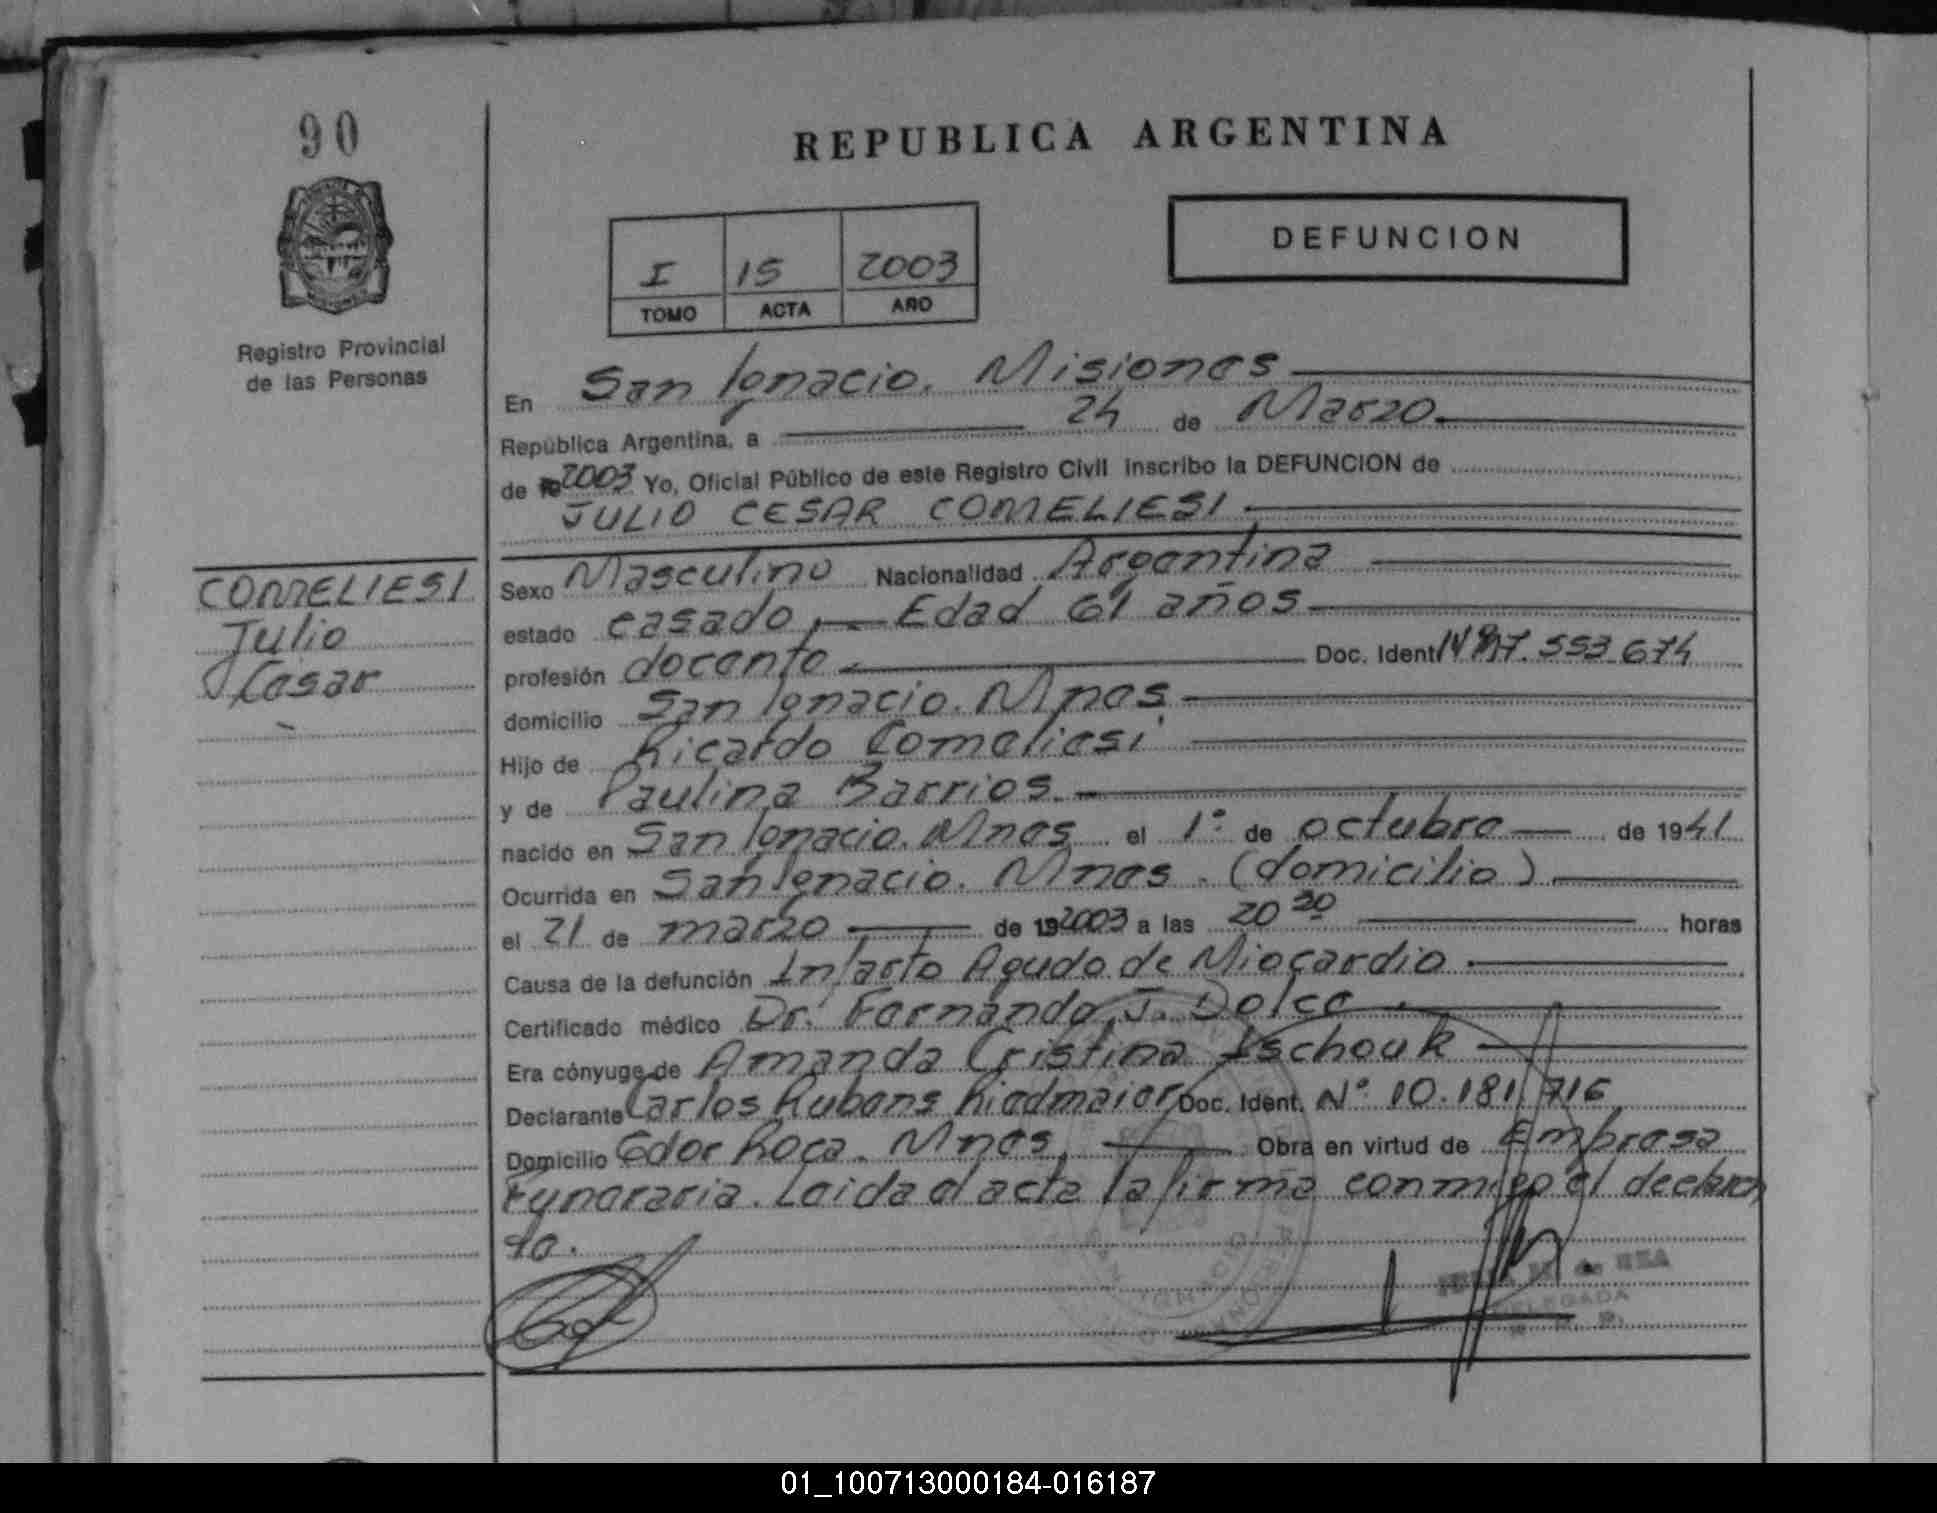 90
REPUBLICA ARGENTINA
DEFUNCION
I 15 2003
TOMO ACTA AÑO
Registro Provincial
de las Personas
En San Ignacio. Misiones
República Argentina, a 24 de Marzo.
de 2003 Yo, Oficial Público de este Registro Civil inscribo la DEFUNCION de
JULIO CESAR COMELIESI
COMELIESI
Julio
Cesar
Sexo Masculino Nacionalidad Argentina
estado casado, Edad 61 años
profesión docente. Doc. Ident. 7.553.674
domicilio San Ignacio. Mnes.
Hijo de Ricardo Comeliesi
y de Paulina Barrios.
nacido en San Ignacio. Mnes el 1° de octubre de 1941
Ocurrida en San Ignacio. Mnes. (domicilio).
el 21 de marzo de 192003 a las 20 30 horas
Causa de la defunción Infarto Agudo de Miocardio.
Certificado médico Dr. Fernando J. Dolce.
Era cónyuge de Amanda Cristina Ischouk
Declarante Carlos Rubens Riedmaier Doc. Ident. N° 10.181.716
Domicilio Gdor Roca. Mnes. Obra en virtud de Empresa
Funeraria. Leida el acta la firma conmigo el declaran
te.
SAN IGNACIO
DELEGADA
01_100713000184-016187